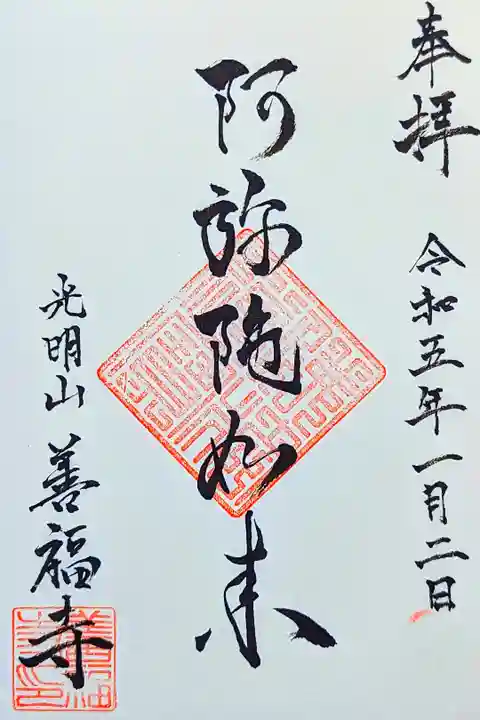 奉拝 令和五年一月二日
阿弥陀如来
光明山 善福寺